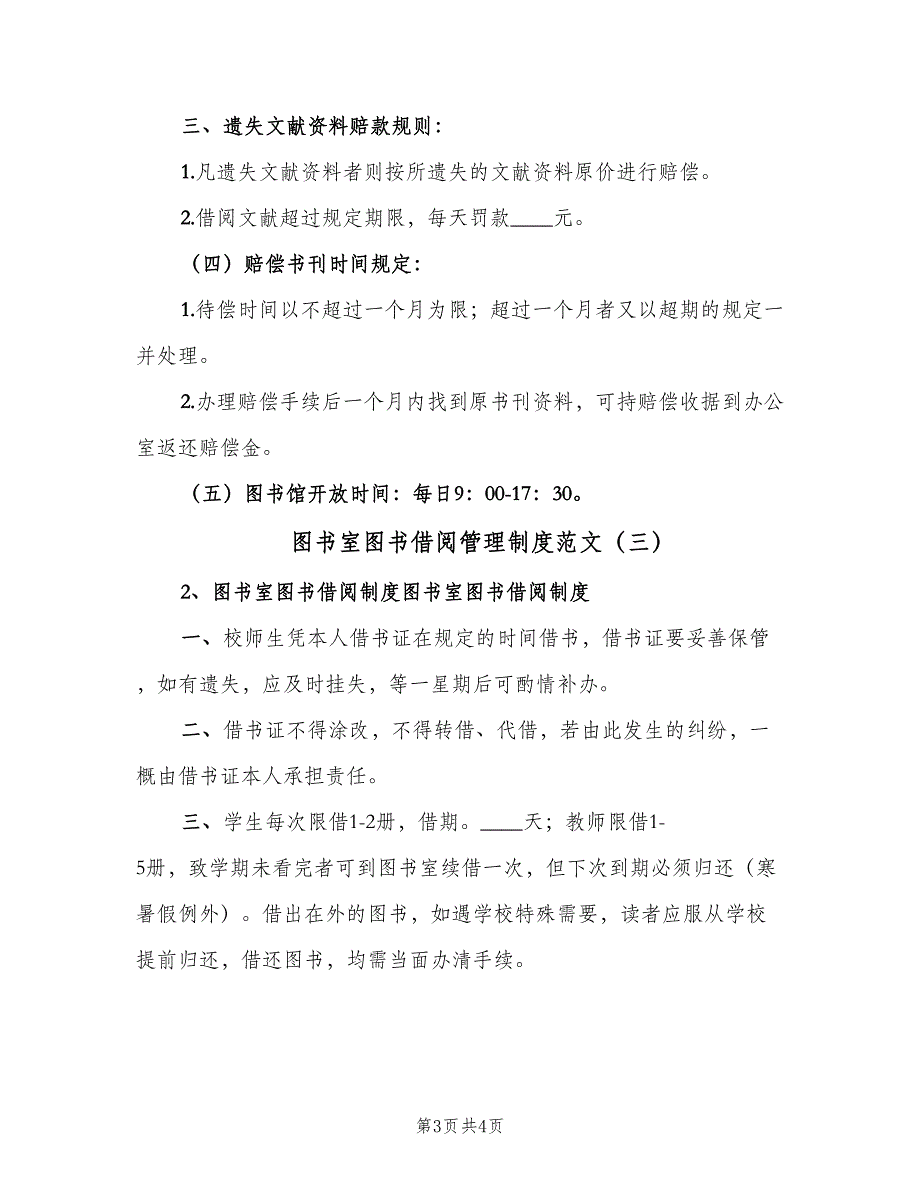 三、遗失文献资料赔款规则：
1.凡遗失文献资料者则按所遗失的文献资料原价进行赔偿。
2.借阅文献超过规定期限，每天罚款____元。
（四）赔偿书刊时间规定：
1.待偿时间以不超过一个月为限；超过一个月者又以超期的规定一
并处理。
2.办理赔偿手续后一个月内找到原书刊资料，可持赔偿收据到办公
室返还赔偿金。
（五）图书馆开放时间：每日9：00-17：30。
图书室图书借阅管理制度范文（三）
2、图书室图书借阅制度图书室图书借阅制度
一、校师生凭本人借书证在规定的时间借书，借书证要妥善保管
，如有遗失，应及时挂失，等一星期后可酌情补办。
二、借书证不得涂改，不得转借、代借，若由此发生的纠纷，一
概由借书证本人承担责任。
三、学生每次限借1-2册，借期。____天；教师限借1-
5册，致学期未看完者可到图书室续借一次，但下次到期必须归还（寒
暑假例外）。借出在外的图书，如遇学校特殊需要，读者应服从学校
提前归还，借还图书，均需当面办清手续。
第3页 共4页